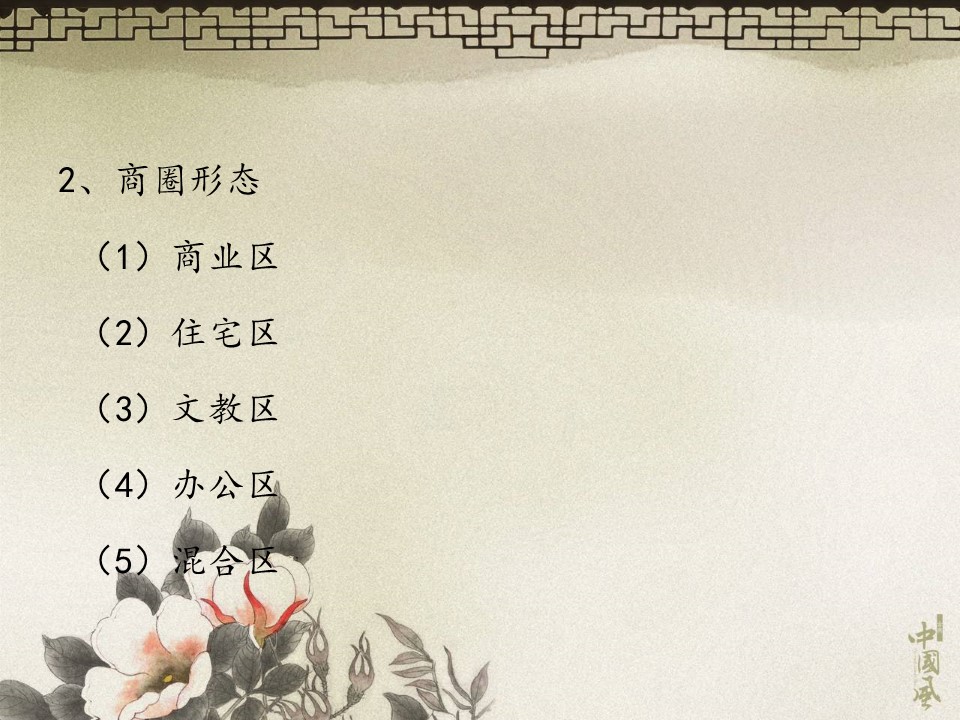 2、商圈形态
（1）商业区
（2）住宅区
（3）文教区
（4）办公区
（5）混合区
中國風